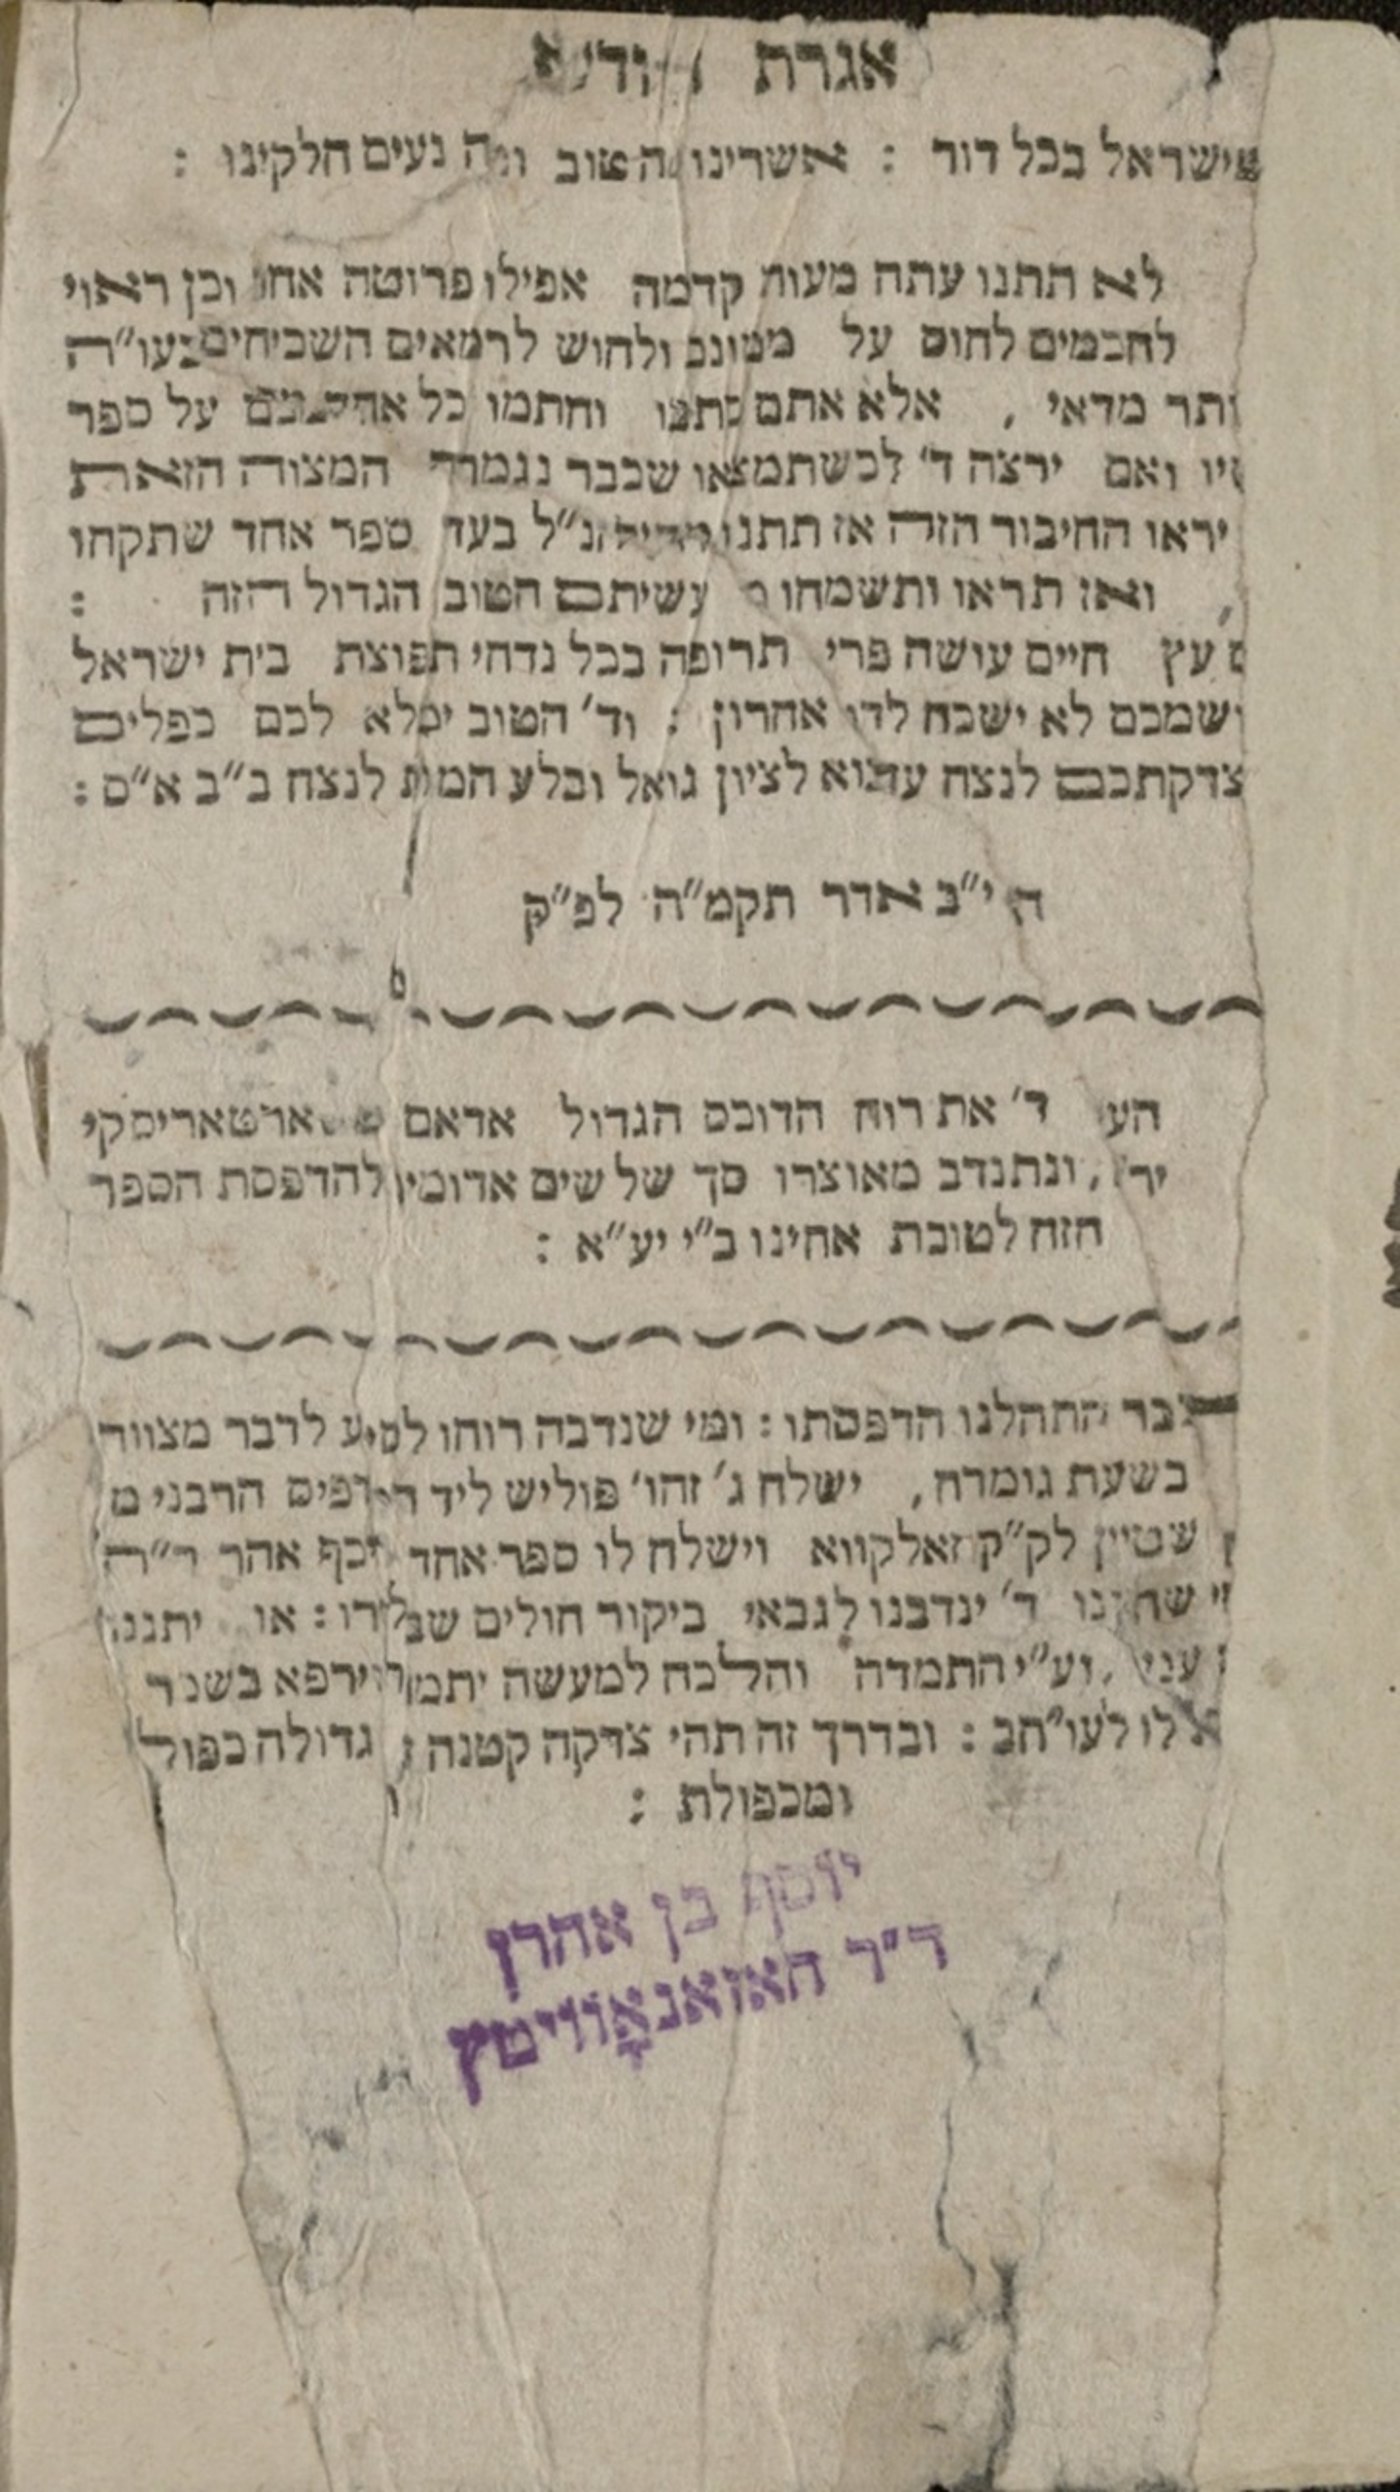 אגרת
ישראל בכל דור : אשרינו הטוב ומה נעים חלקינו :
לא תתנו עתה מעות קדמה אפילו פרוטה אחת וכן ראוי
לחכמים לחוס על ממונם ולחוש לרמאים השכיחים בעו״ה
ותר מדאי , אלא אתם כתבו וחתמו כל אחד על ספר
ואם ירצה ד׳ לכשתמצאו שכבר נגמרה המצוה הזאת
יראו החיבור הזה אז תתנו הנ״ל בעד ספר אחד שתקחו
, ואז תראו ותשמחו עשיתם הטוב הגדול הזה :
עץ חיים עושה פרי תרופה בכל נדחי תפוצת בית ישראל
ושמכם לא ישכח לדור אחרון : וד׳ הטוב ימלא לכם כפלים
צדקתכם לנצח עד בוא לציון גואל ובלע המות לנצח ב״ב א״ס :
ה י״ב אדר תקמ״ה לפ״ק
ד׳ את רוח הדוכס הגדול אדאם
, ונתנדב מאוצרו סך של שים אדומין להדפסת הספר
הזה לטובת אחינו ב״י יע״א :
כבר התחלנו הדפסתו : ומי שנדבה רוחו לסייע לדבר מצוה
בשעת גומרה , ישלח ג׳ זהו׳ פוליש ליד דרפוס הרבנים
שטיין לק״ק זאלקווא וישלח לו ספר אחד תכף אחר ר״ה
ד׳ ינדבנו לגבאי ביקור חולים או
עני , וע״י התמדה והלכה למעשה וירפא
לו לעו״חב : ובדרך זה תהי צדקה קטנה גדולה כפולה
ומכפולת :
יוסף בן אהרן
ד״ר האזאנאָוויטץ